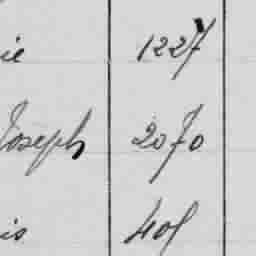 ie 1227
Joseph 2070
is 408